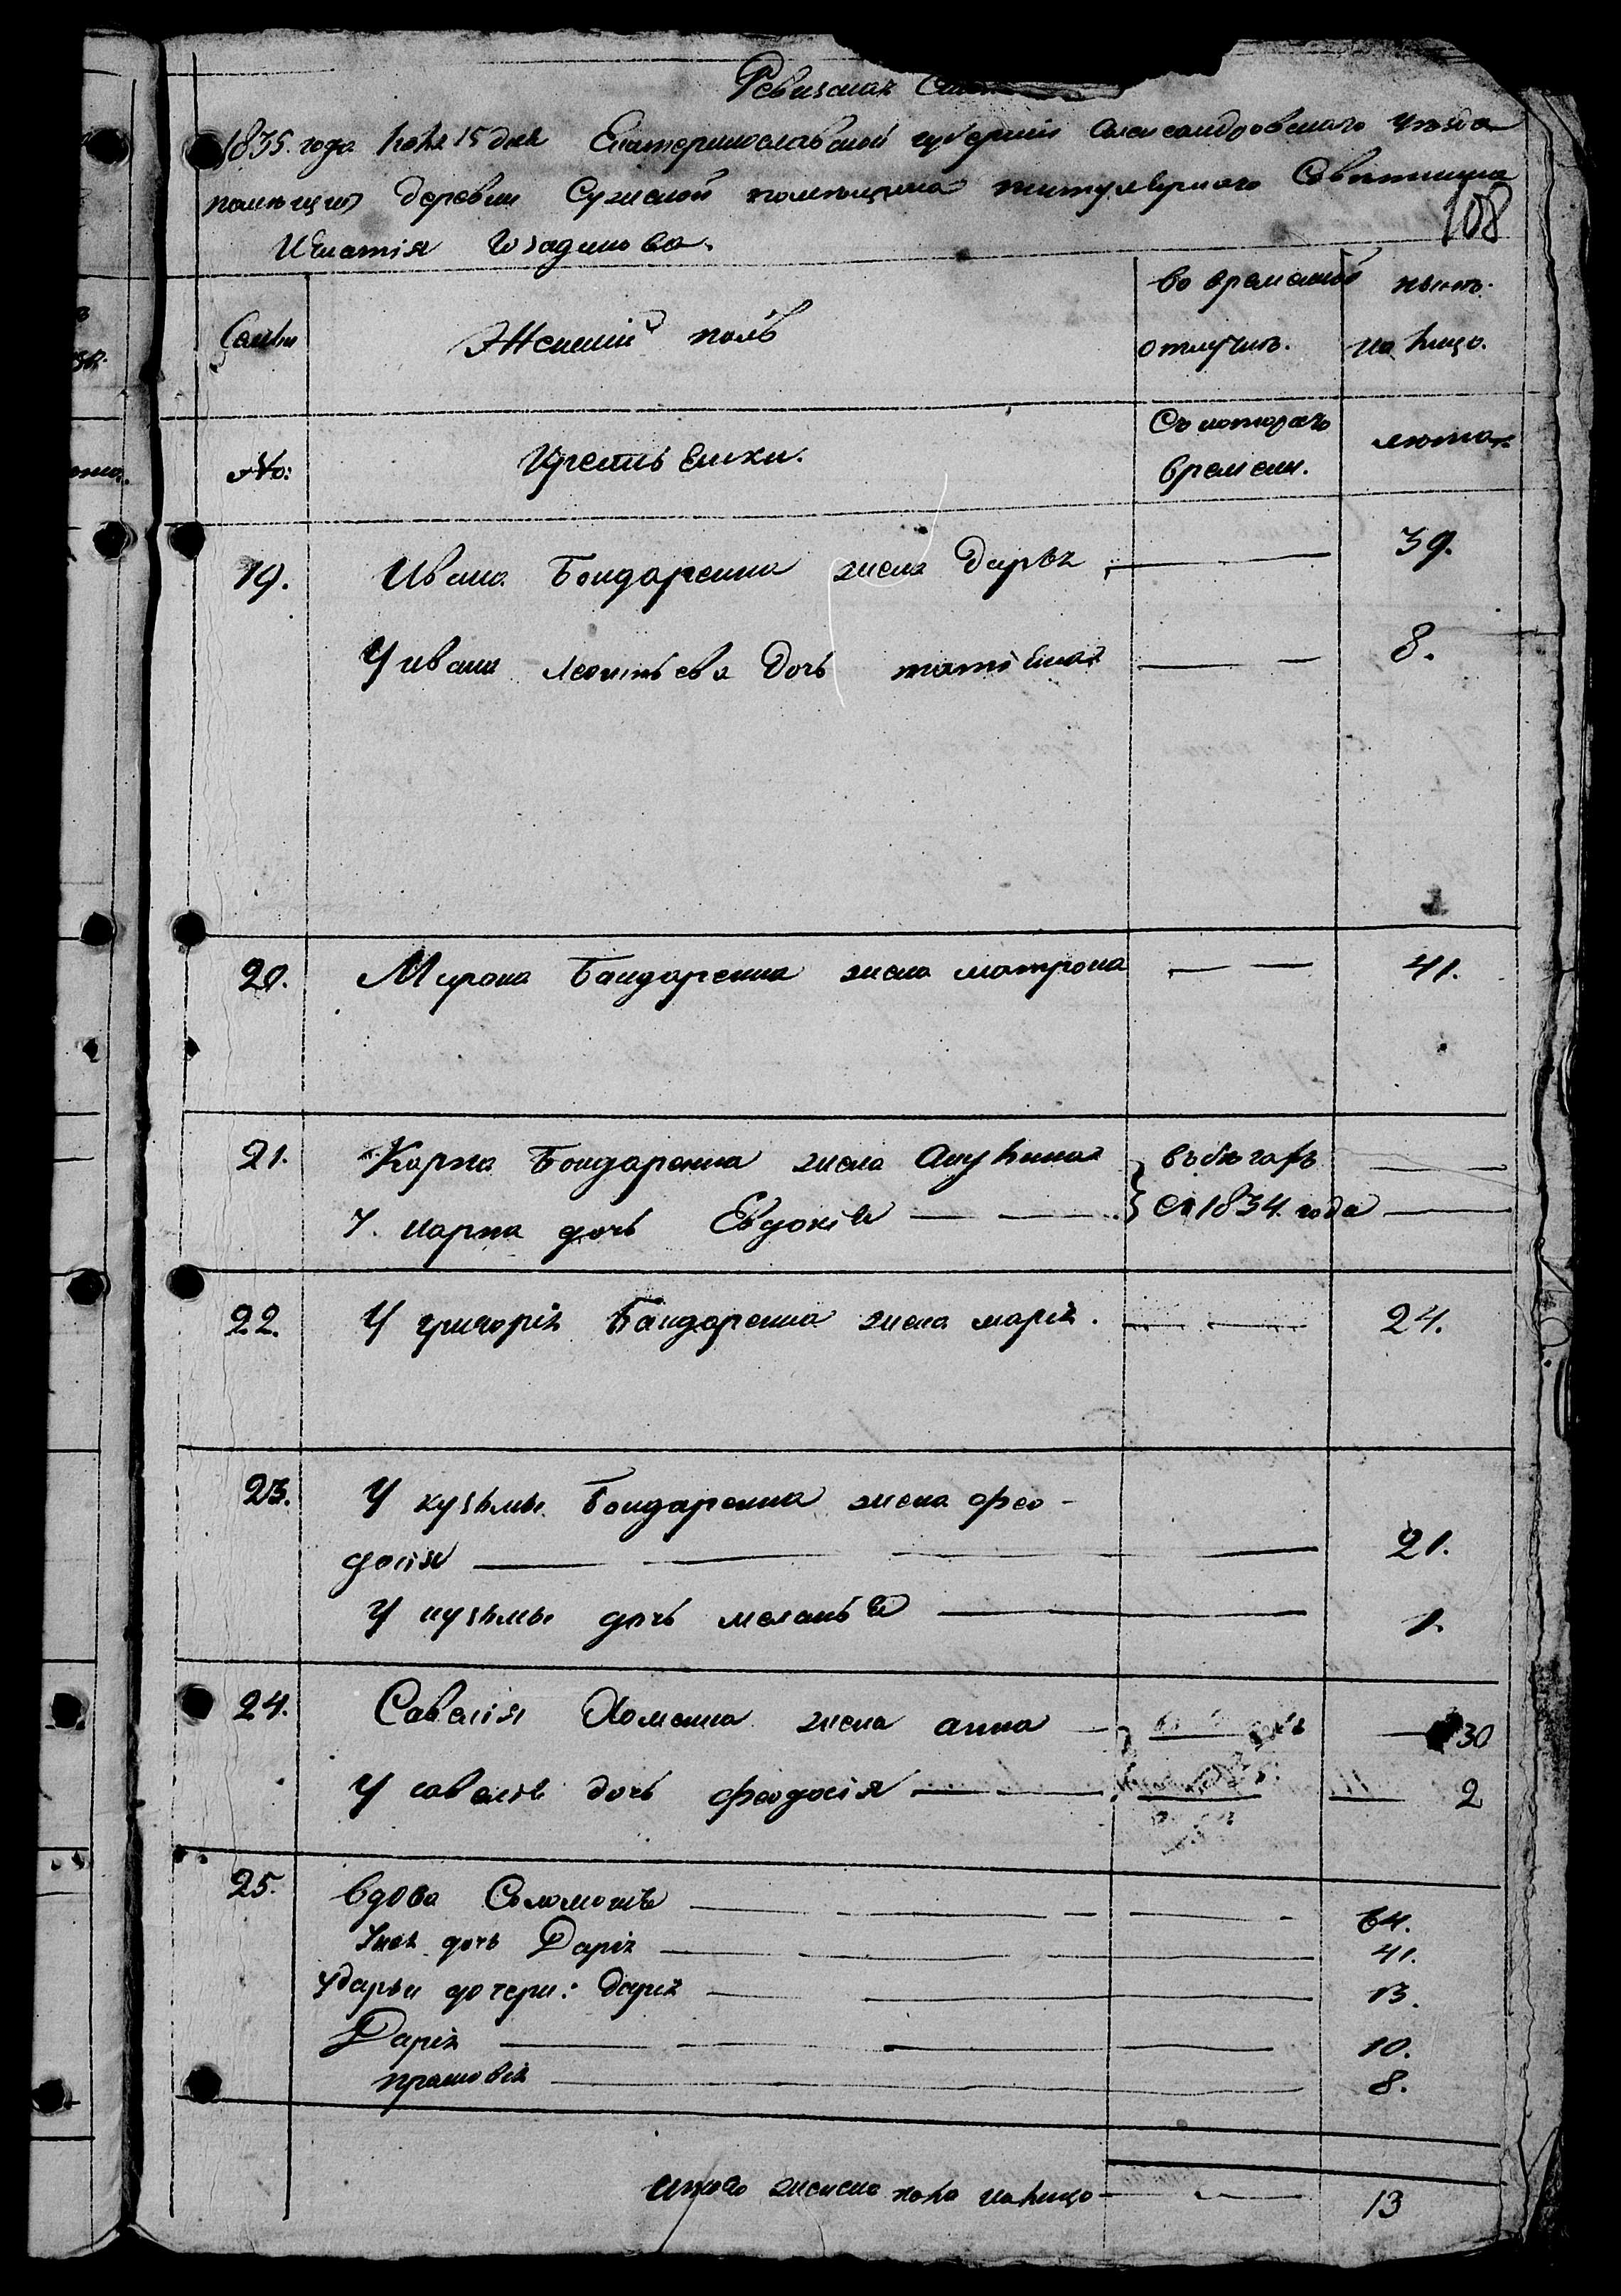 Ревизская
1835. года Іюля 15 дня Екатеринославской губерніи Александровского уезда
помещич деревни Сужской помещика титулярного Советника
108
Игнатія Гозадинова.
Семьи
Женский полъ
во временной
отлучке.
ныне
на лицо.
№:
Крестьянки.
Съ которого
времени.
лета.
19. Ивана Бондаренка жена Дарья 39.
У ивана леонтьева дочь татіяна 8.
20. Мирона Бондаренка жена матрона 41.
21. Карпа Бондаренка жена Акулина въ бегахъ
У карпа дочь Евдокія съ 1834. года
22. У григорія Бондаренка жена марія. 24.
23. У кузьмы Бондаренка жена фео-
досія 21.
У кузьмы дочь меланья 1.
24. Савелія Хоменка жена анна 30
У савелія дочь феодосія 2
25. вдова Соломонія 64.
У нея дочь Дарія 41.
У дарьи дочери: Дарія 13.
Дарія 10.
прасковія 8.
Итого женска пола на лицо 13